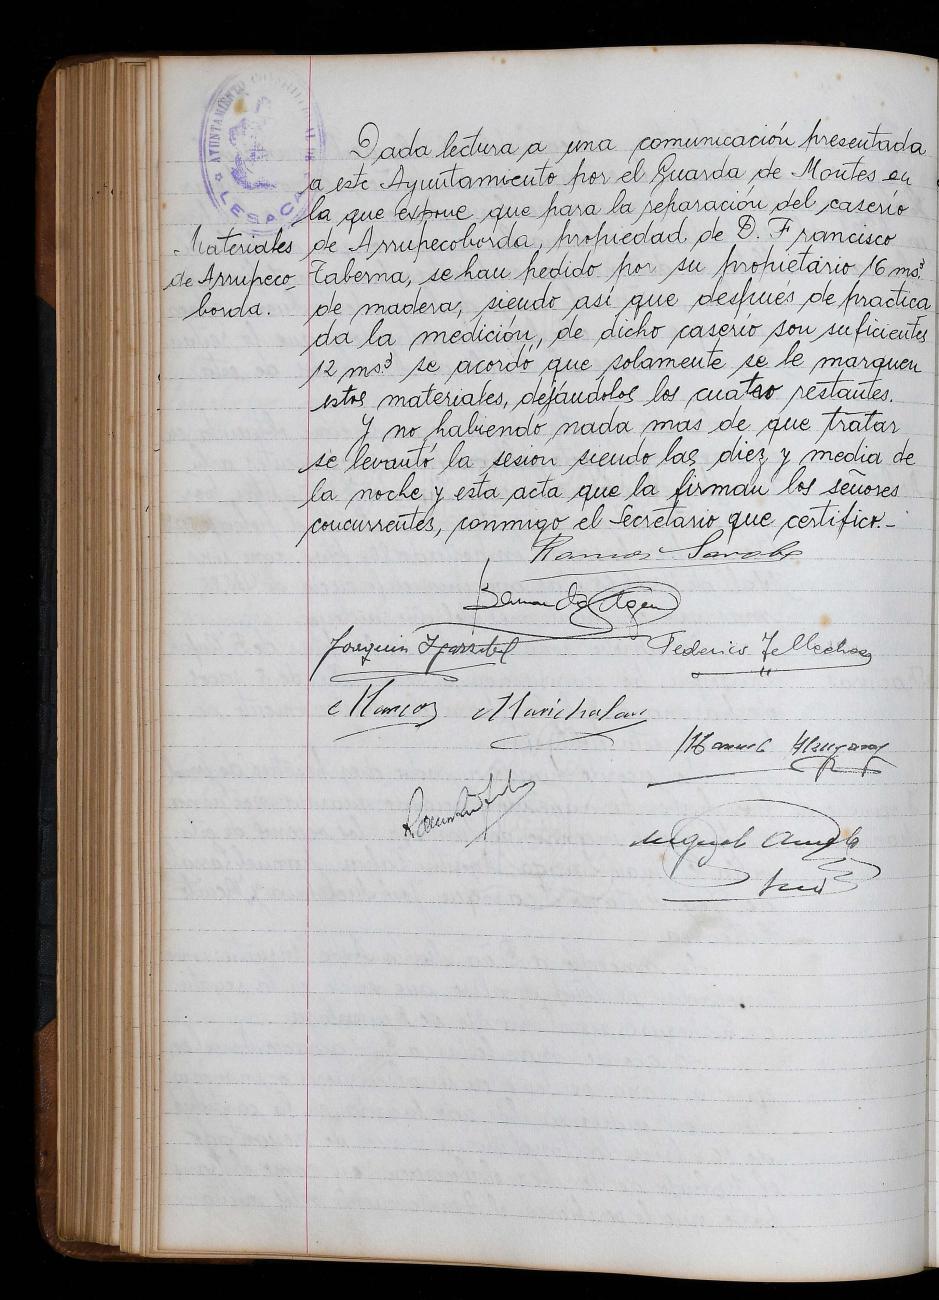 AYUNTAMIENTO CONSTITUCIONAL DE
LESACA
Dada lectura a una comunicación presentada
a este Ayuntamiento por el Guarda de Montes en
la que expone que para la reparación del caserio
Materiales
de Arrupeco
borda.
de Arrupecoborda, propiedad de D. Francisco
Taberna, se han pedido por su propietario 16 ms.³
de madera, siendo así que después de practica
da la medición, de dicho caserio son suficientes
12 ms.³ se acordó que solamente se le marquen
estos materiales, dejándolos los cuatro restantes.
Y no habiendo nada mas de que tratar
se levantó la sesion siendo las diez y media de
la noche y esta acta que la firman los señores
concurrentes, conmigo el Secretario que certifico.-
Ramon
Bernardo
Joaquin
Federico Tellechea
Marcos Marichalar
Manuel
Miguel